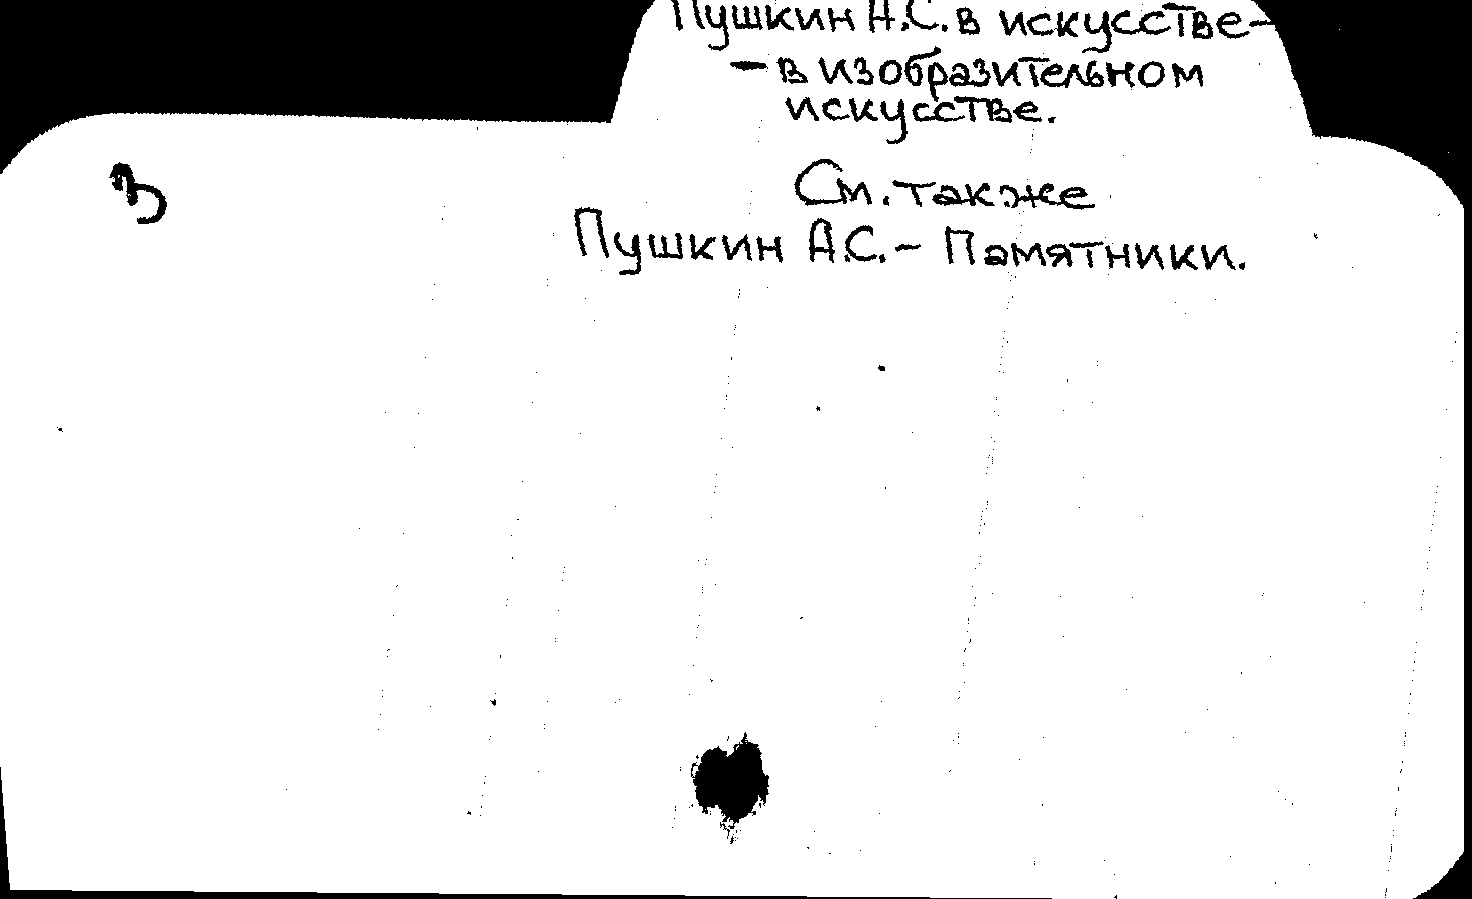 Пушкин А.С. в искусстве-
- в изобразительном
искусстве.
См. также
Пушкин А.С. - Памятники.